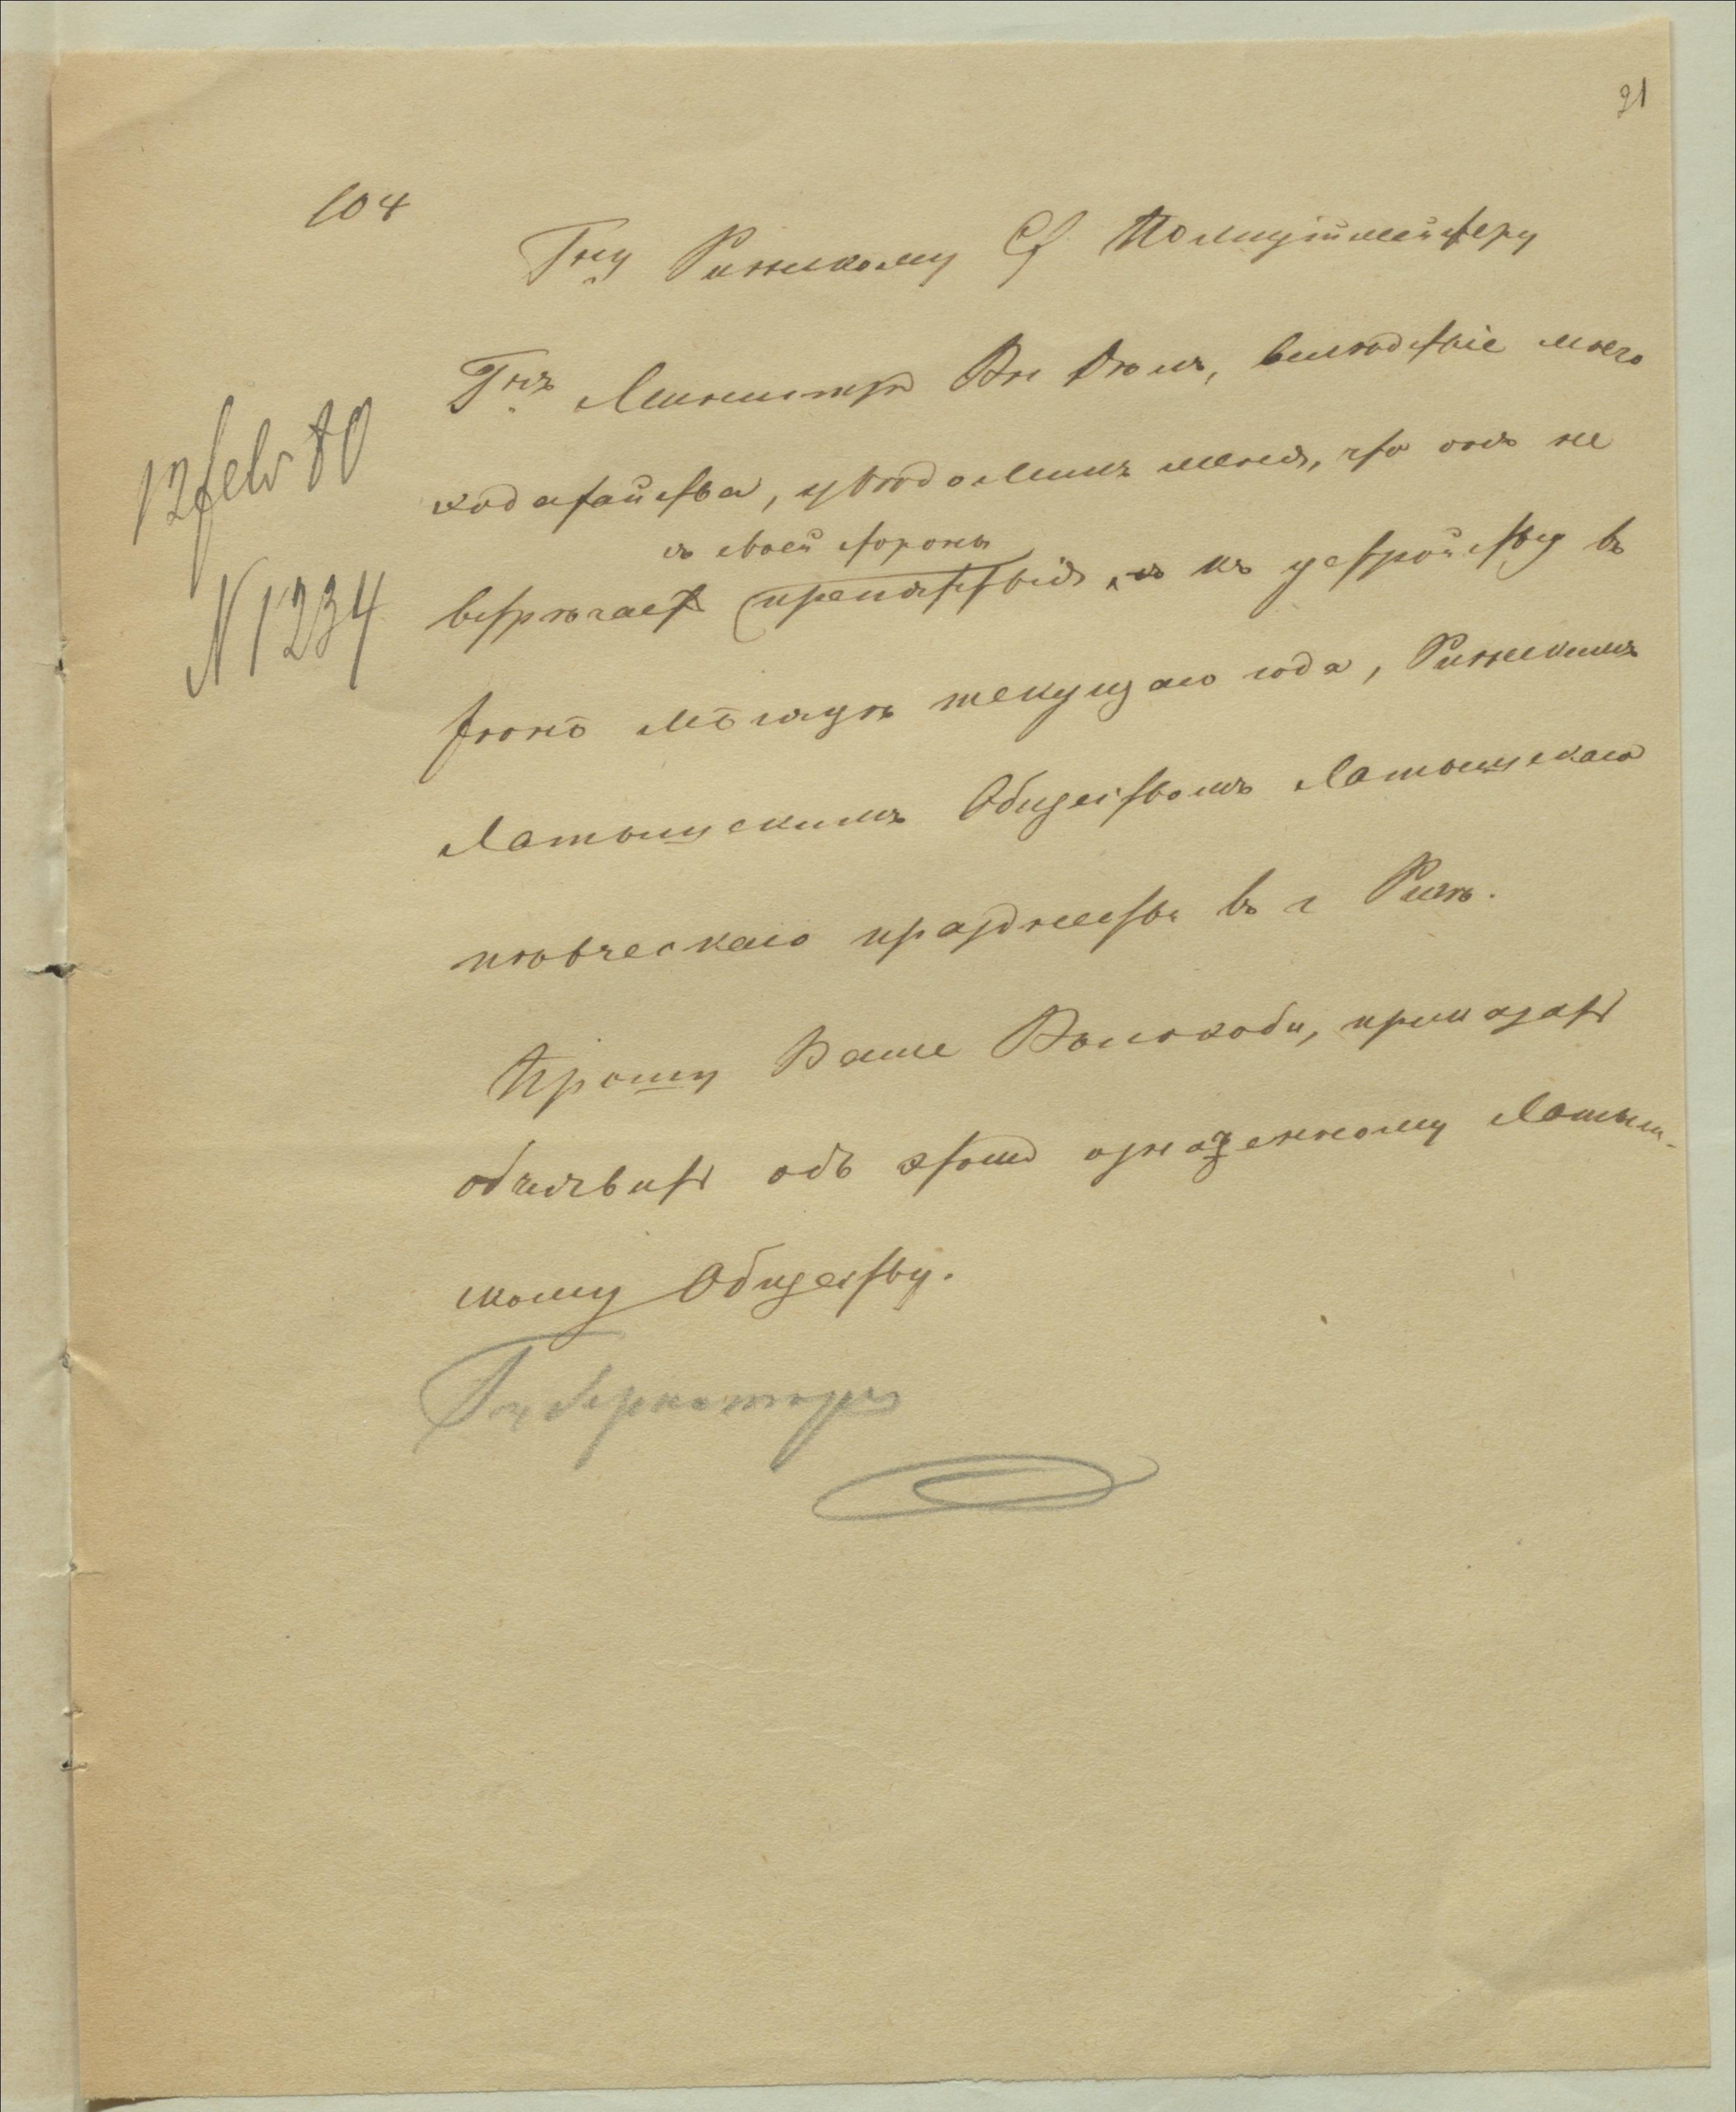 91
104
Гну Рижскому Ст Полиціймейстеру
Гнъ Министръ Вн Дѣлъ, вслѣдствіе моего
12 febr 80
ходатайства, увѣдомилъ меня, что онъ не
съ своей стороны
встрѣчаетъ препятствія къ устройству въ
N 1234
Іюнѣ мѣсяцѣ текущаго года, Рижскимъ
Латышскимъ Обществомъ Латышскаго
пѣвческаго празднества въ г Ригѣ.
Прошу Ваше Высокобл, приказать
объявить объ этомъ означенному Латыш-
скому Обществу.
Губернаторъ